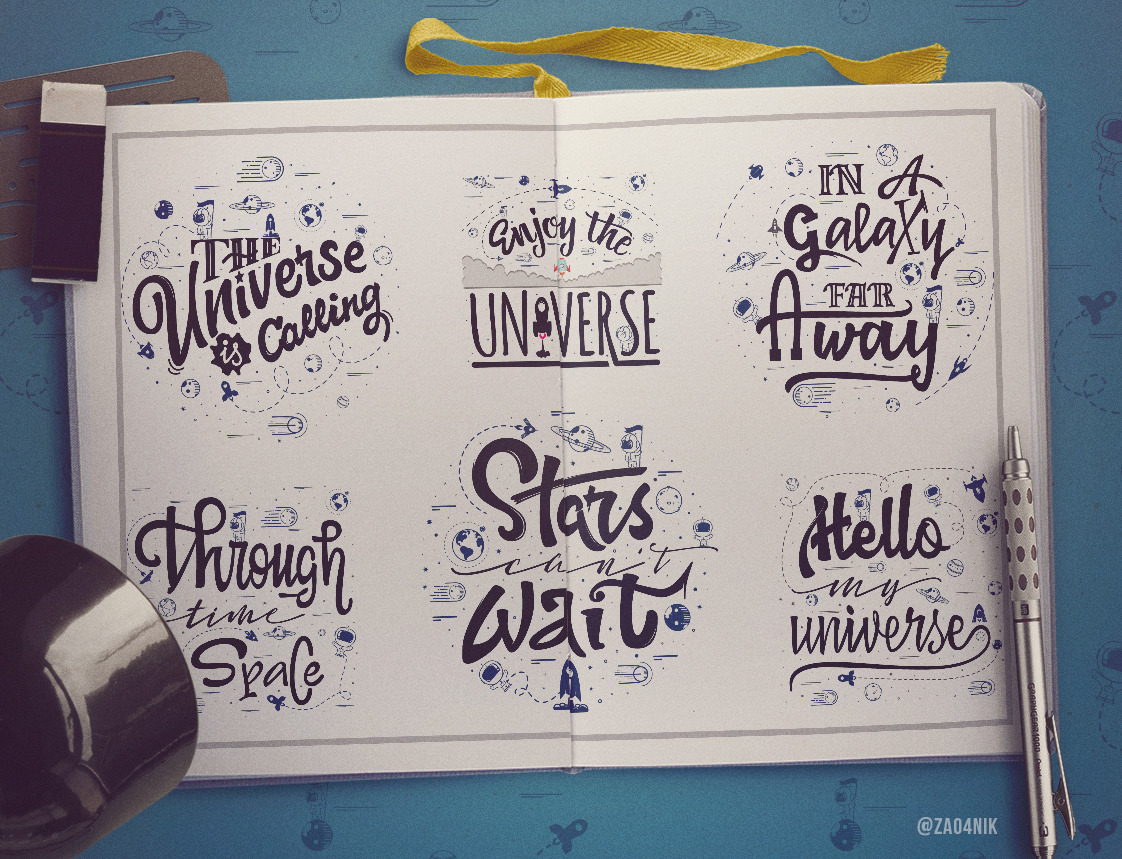 THE
Universe
is Calling
Enjoy the
UNIVERSE
IN A
Galaxy
FAR
Away
Through
time
Space
Stars
can't
wait
Hello
my
universe
@ZA04NIK